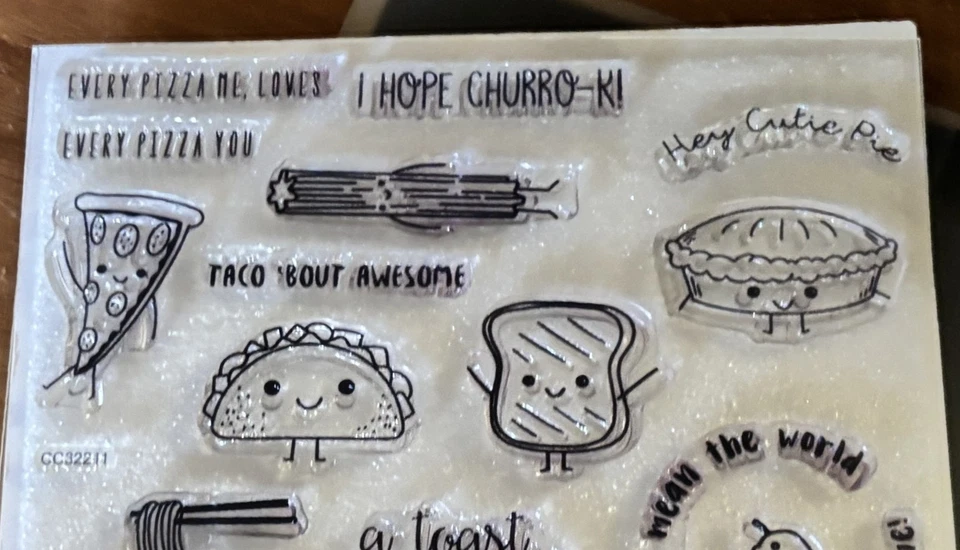 EVERY PIZZA ME, LOVES
EVERY PIZZA YOU
I HOPE CHURRO-K!
Hey Cutie Pie
TACO 'BOUT AWESOME
CC32211
mean the world
a toast